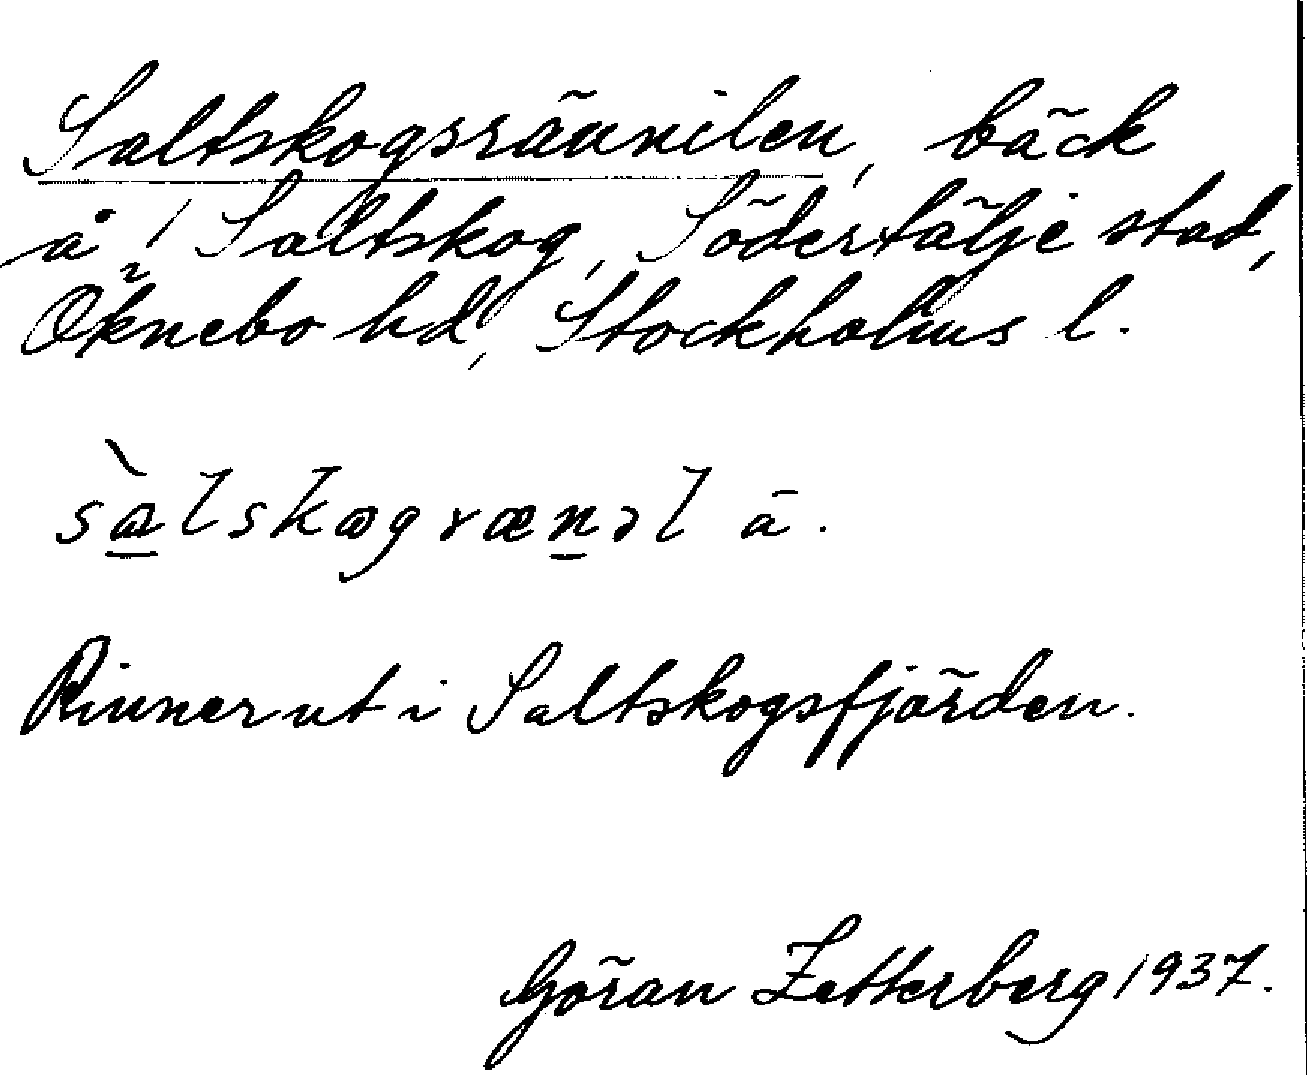 Saltskogsrännilen, bäck
å 1/2 Saltskog, Södertälje stad,
Öknebo hd, Stockholms l.
sàlskogrænəl ā.
Rinner ut i Saltskogsfjärden.
Göran Zetterberg 1937.